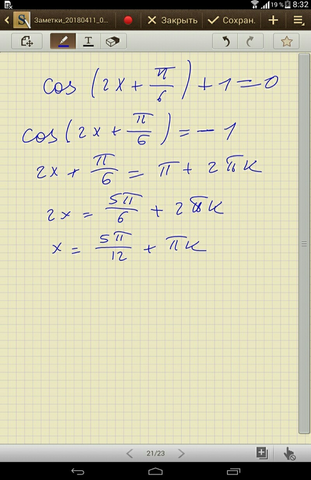 19% 8:32
Заметки_20180411_0... Закрыть Сохран.
cos (2x + π/6) + 1 = 0
cos (2x + π/6) = -1
2x + π/6 = π + 2πk
2x = 5π/6 + 2πk
x = 5π/12 + πk
21/23